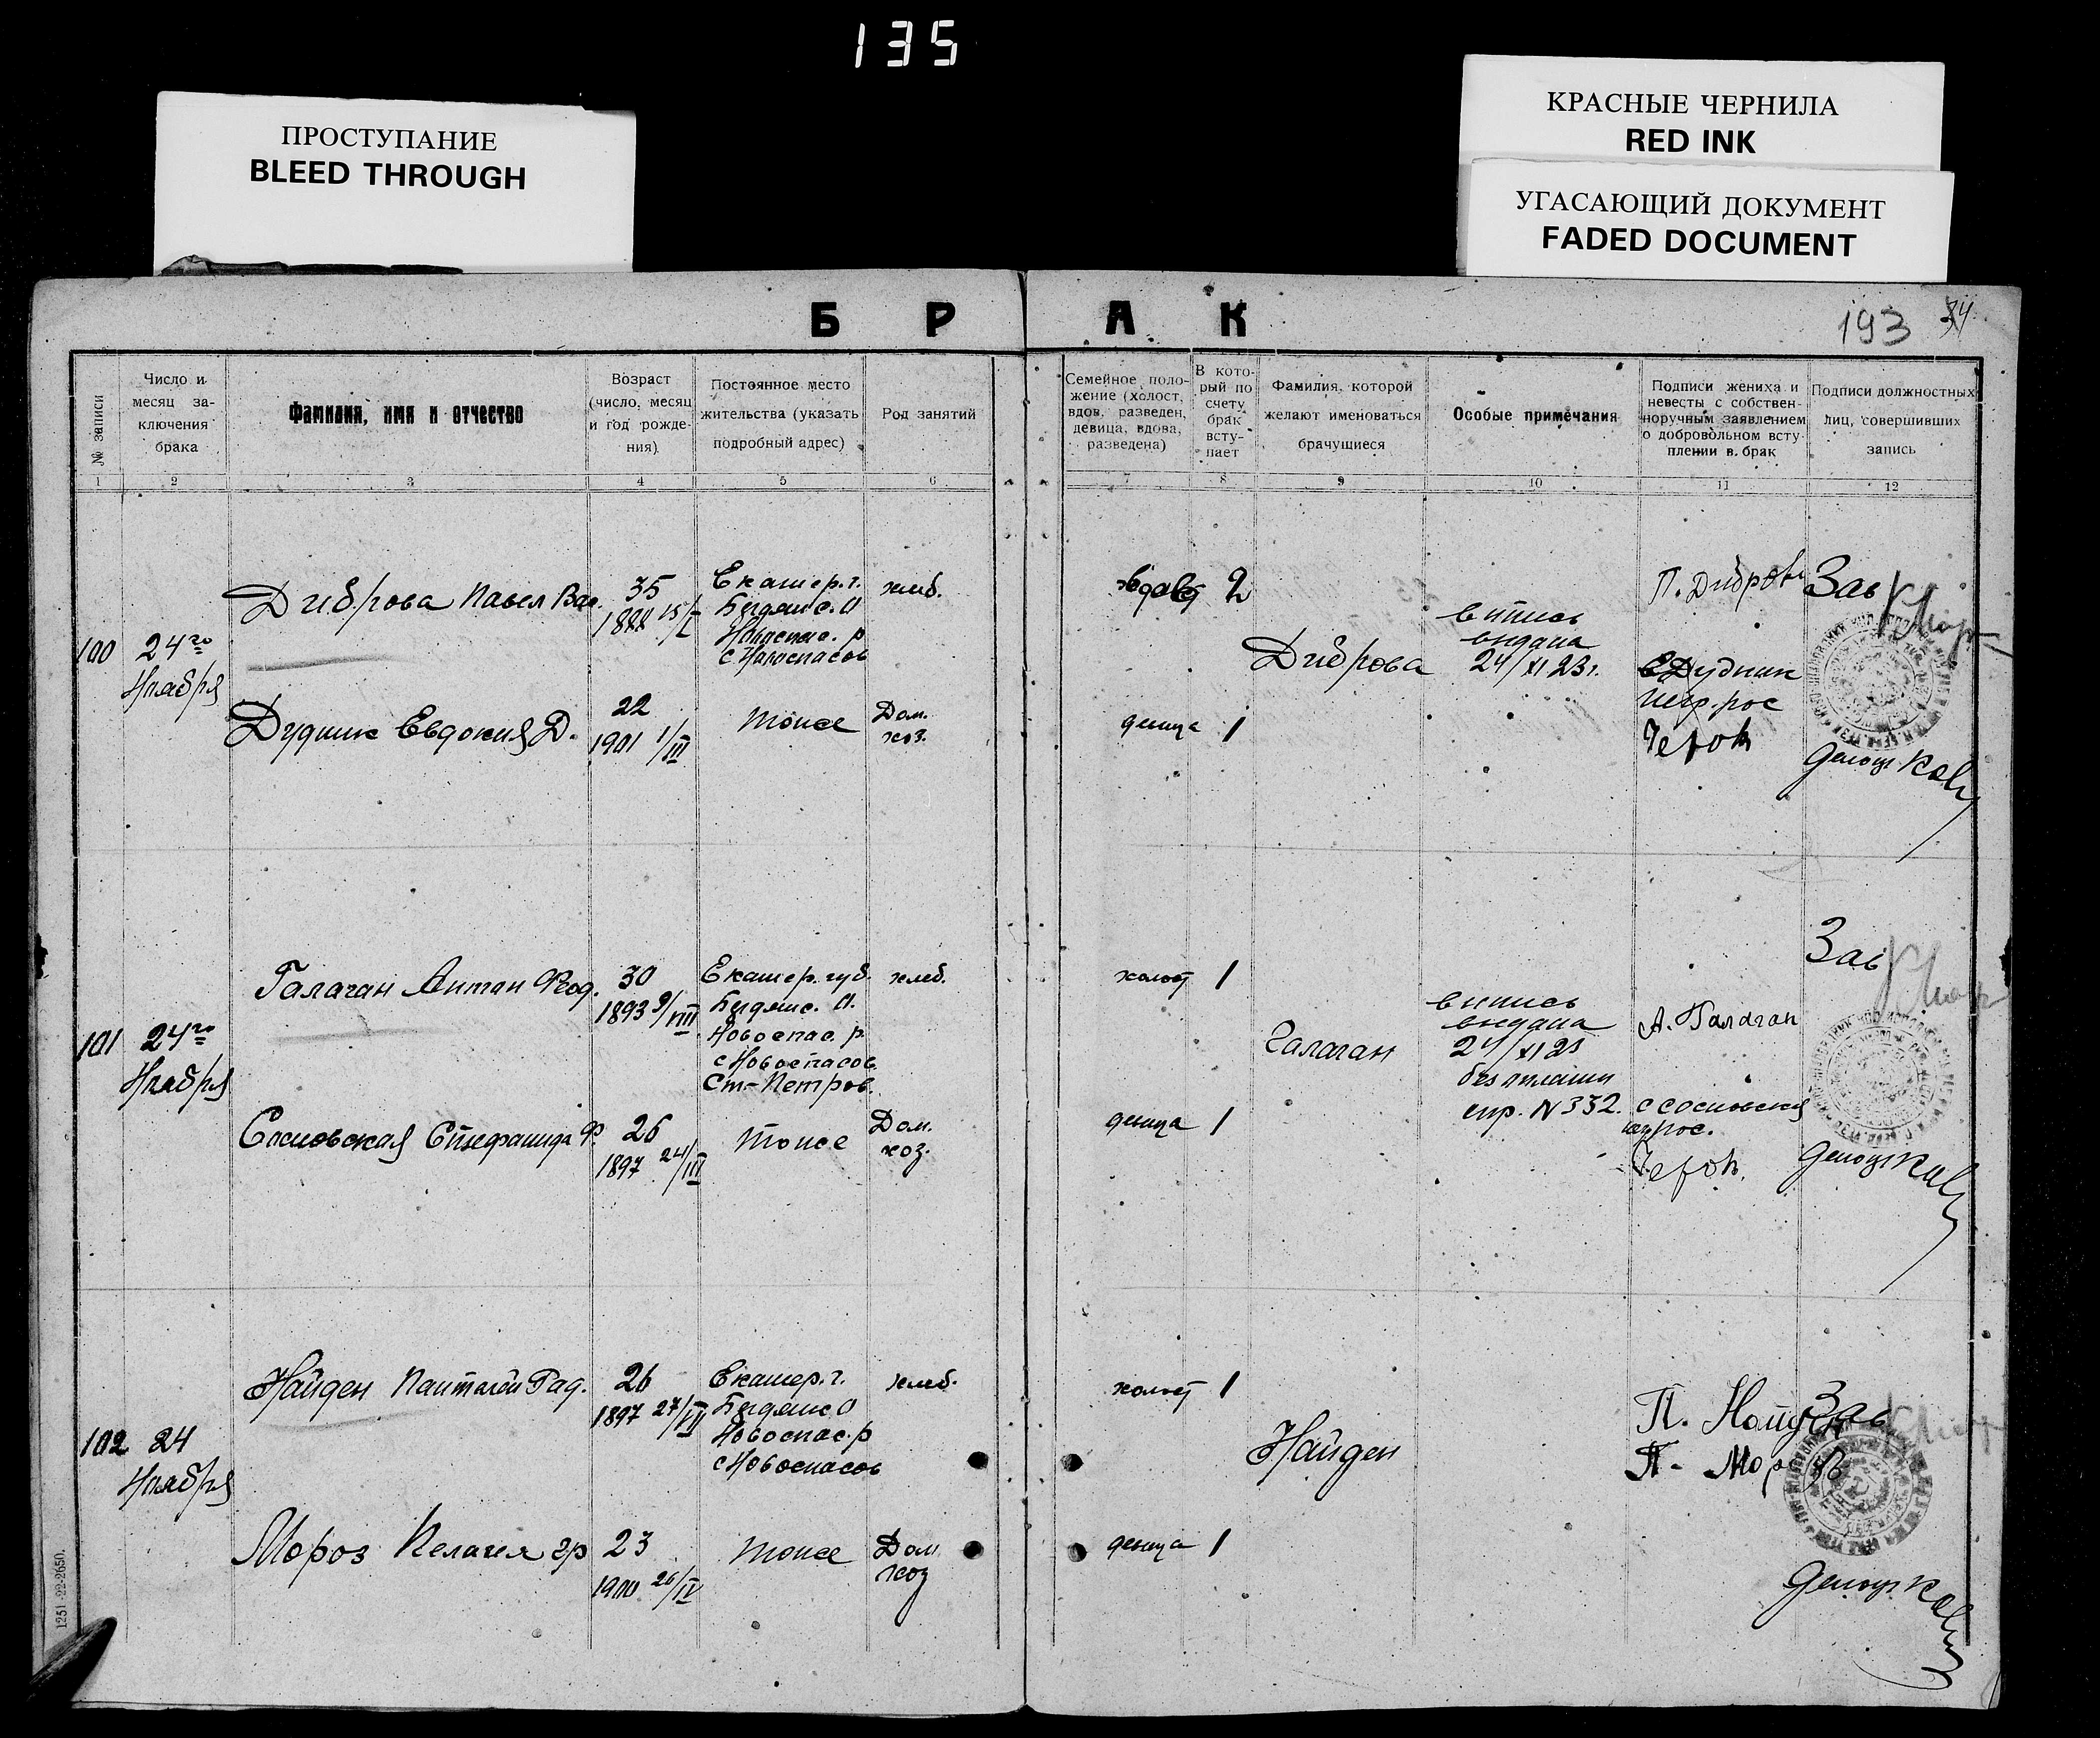 135
ПРОСТУПАНИЕ
BLEED THROUGH
КРАСНЫЕ ЧЕРНИЛА
RED INK
УГАСАЮЩИЙ ДОКУМЕНТ
FADED DOCUMENT
БРАК
193
34
№ записи
Число и месяц за-
ключения
брака
Фамилия, имя и отчество
Возраст
(число, месяц
и год рожде-
ния)
Постоянное место
жительства (указать
подробный адрес)
Род занятий
Семейное поло-
жение (холост,
вдов, разведен,
девица, вдова,
разведена)
В кото-
рый по
счету
брак
всту-
пает
Фамилия, которой
желают именоваться
брачущиеся
Особые примечания
Подписи жениха и
невесты с собствен-
норучным заявлением
о добровольном всту-
плении в брак
Подписи должностных
лиц, совершивших
запись
1 2 3 4 5 6 7 8 9 10 11 12
100
24го
Ноября
Диброва Павел Вас.
35
15/I
Екатер. г.
Бердянс. О
с Новоспасов
хлеб.
вдов
2
Диброва
выпись
выдана
24/XI 23 г.
П. Диброва
Зав
Дудник Евдокия Д.
22
1901 1/III
тоже
Дом.
хоз.
девица
1
Е Дудник
негр. рос
делоц
101
24го
Ноября
Галаган Антон Фед.
30
1893 9/VIII
Екатер. губ.
Бердянс. О.
Новоспас. р.
с Новоспасов
Ст-Петров.
хлеб.
холост
1
Галаган
выпись
выдана
24/XI 23
без платы
спр. N 332.
А. Галаган
Зав
Сосновская Стефанида Ф.
26
1897 24/III
тоже
Дом.
хоз.
девица
1
С Сосновская
делоц
102
24
Ноября
Найден Пантелей Рад.
26
1897 27/VII
Екатер. г.
Бердянс. О
Новоспас. р
с Новоспасов
хлеб.
холост
1
Найден
П. Найден
Зав
П. Мороз
Мороз Пелагея Гр
23
1900 26/IV
тоже
Дом
хоз
девица
1
делоц
1251-22-2650.